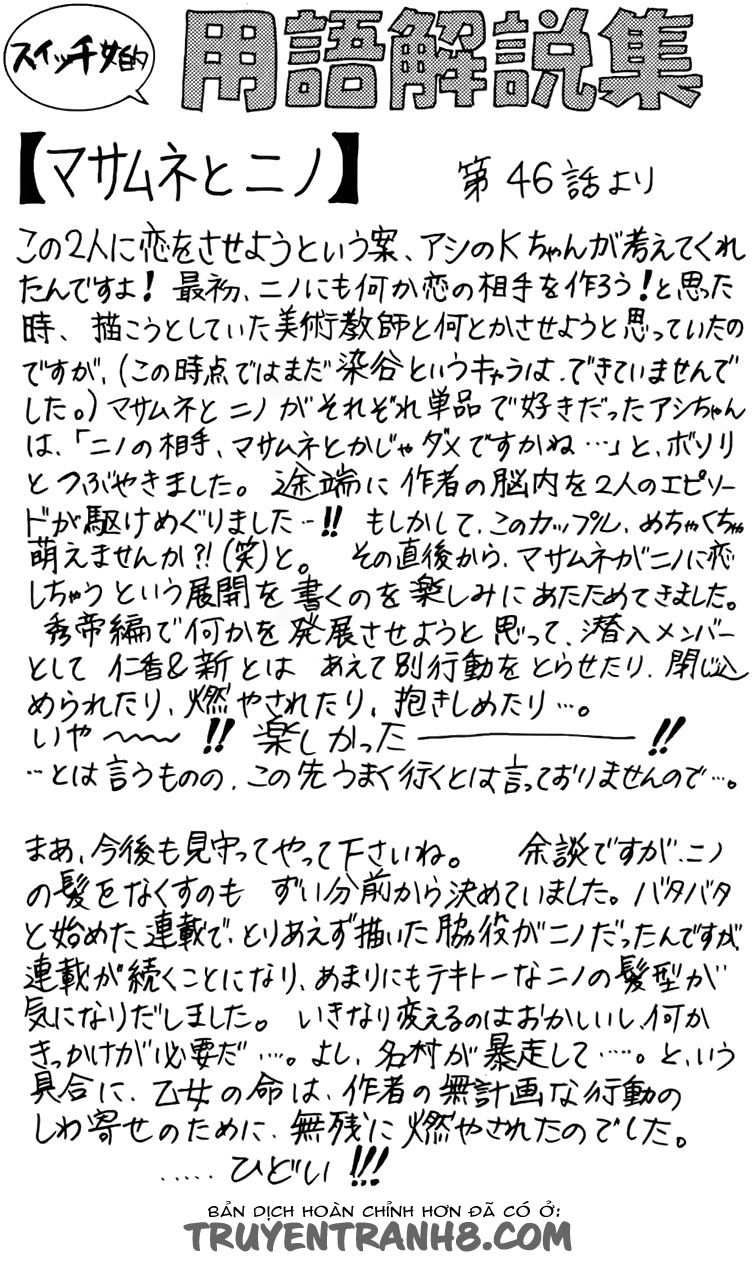 スイッチ女的
用語解説集
【マサムネとニノ】 第46話より
この2人に恋をさせようという案、アシのKちゃんが考えてくれ
たんですよ！最初、ニノにも何か恋の相手を作ろう！と思った
時、描こうとしていた美術教師と何とかさせようと思っていたの
ですが、（この時点ではまだ染谷というキャラは、できていませんで
した。）マサムネとニノがそれぞれ単品で好きだったアシちゃん
は、「ニノの相手、マサムネとかじゃダメですかね…」と、ボソリ
とつぶやきました。途端に作者の脳内を2人のエピソー
ドが駆けめぐりました…!! もしかして、このカップル、めちゃくちゃ
萌えませんか?!（笑）と。 その直後から、マサムネがニノに恋
しちゃうという展開を書くのを楽しみにあたためてきました。
秀帝編で何かを発展させようと思って、潜入メンバー
として 仁香&新とは あえて別行動をとらせたり、閉じ込
められたり、燃やされたり、抱きしめたり…。
いや〜〜〜!! 楽しかった――――!!
…とは言うものの、この先うまく行くとは言っておりませんので…。
まあ、今後も見守ってやって下さいね。 余談ですが、ニノ
の髪をなくすのも ずい分前から決めていました。バタバタ
と始めた連載で、とりあえず描いた脇役がニノだったんですが、
連載が続くことになり、あまりにもテキトーなニノの髪型が
気になりだしました。いきなり変えるのはおかしいし、何か
きっかけが必要だ…。よし、名村が暴走して……。と、いう
具合に、乙女の命は、作者の無計画な行動の
しわ寄せのために、無残に燃やされたのでした。
……ひどい!!!
BẢN DỊCH HOÀN CHỈNH HƠN ĐÃ CÓ Ở:
TRUYENTRANH8.COM